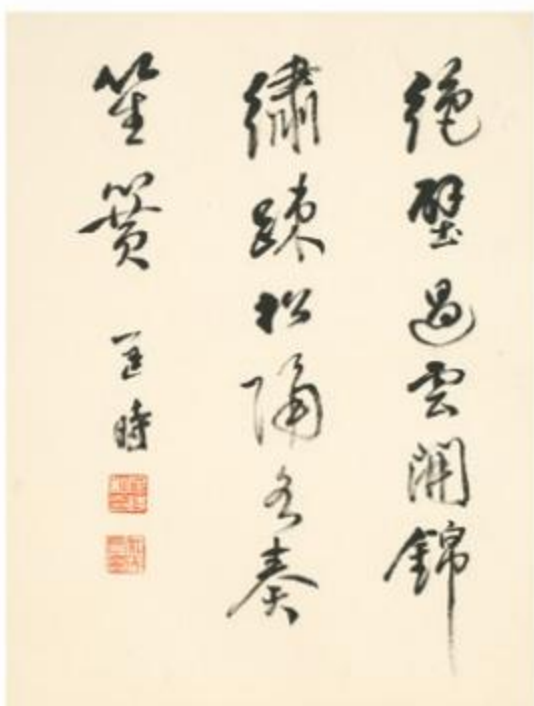 絶壁過雲開錦
繡踈松隔水奏
笙簧
匡時